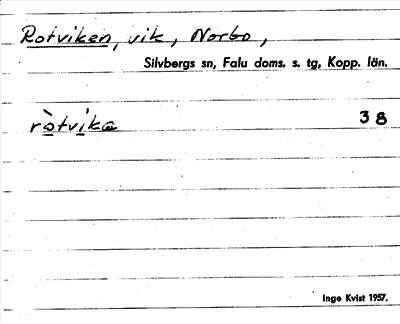 Rotviken, vik, Norbo,
Silvbergs sn, Falu doms. s. tg, Kopp. län.
ròtvika 38
Inge Kvist 1957.